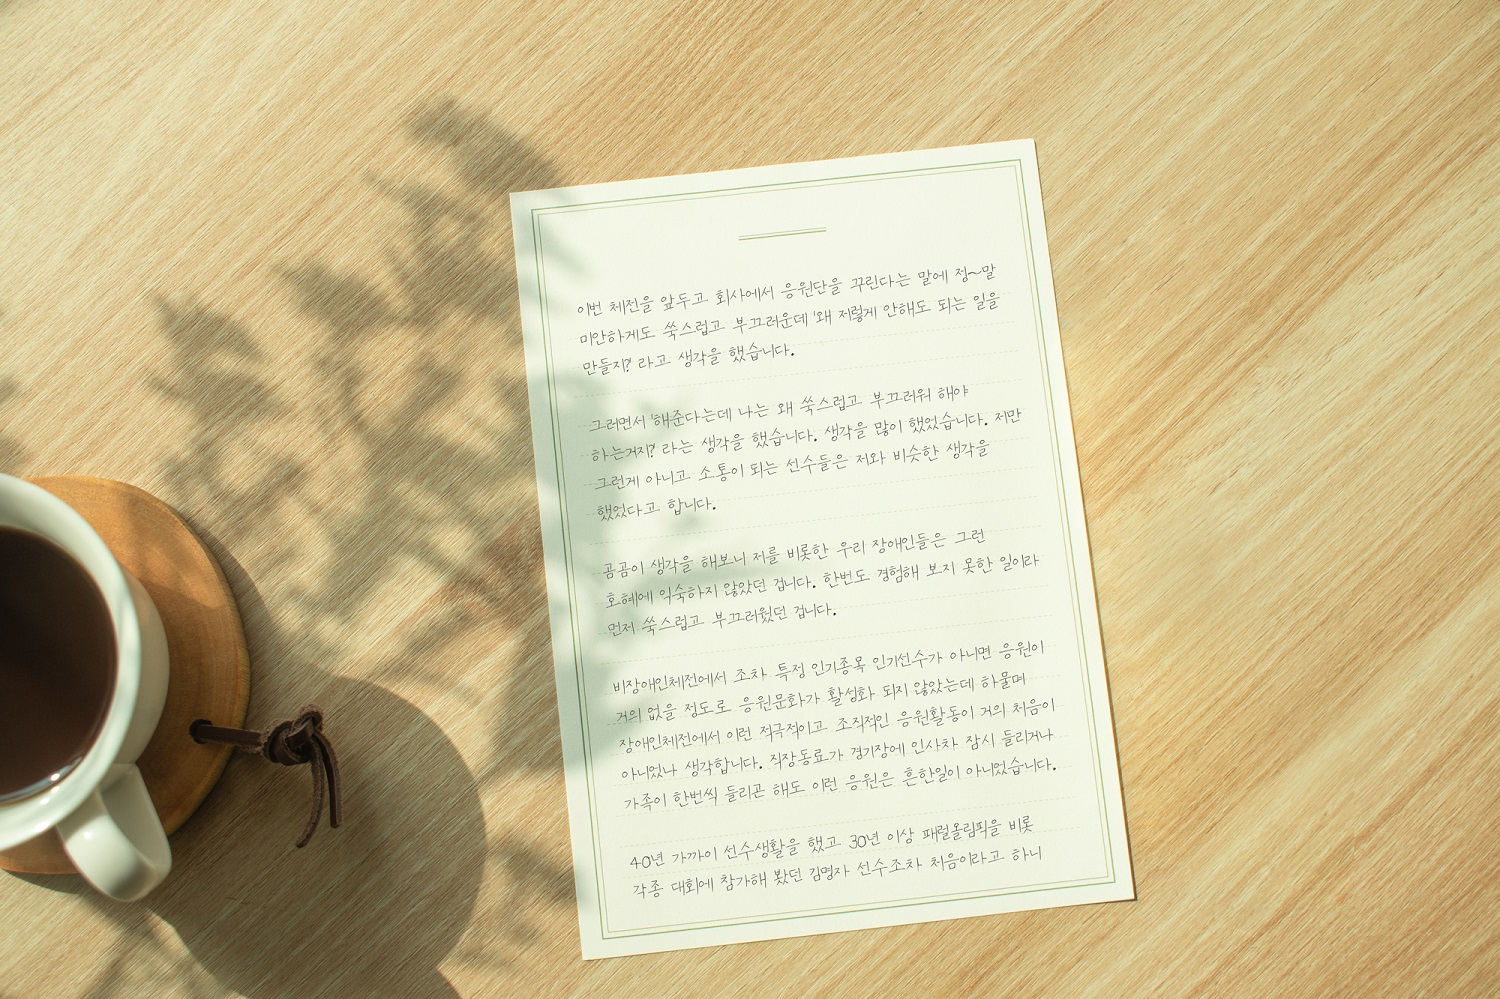 이번 체전을 앞두고 회사에서 응원단을 꾸린다는 말에 정~말
미안하게도 쑥스럽고 부끄러운데 '왜 저렇게 안해도 되는 일을
만들지?' 라고 생각을 했습니다.
그러면서 '해준다는데 나는 왜 쑥스럽고 부끄러워 해야
하는거지?' 라는 생각을 했습니다. 생각을 많이 했었습니다. 저만
그런게 아니고 소통이 되는 선수들은 저와 비슷한 생각을
했었다고 합니다.
곰곰이 생각을 해보니 저를 비롯한 우리 장애인들은 그런
호혜에 익숙하지 않았던 겁니다. 한번도 경험해 보지 못한 일이라
먼저 쑥스럽고 부끄러웠던 겁니다.
비장애인체전에서 조차 특정 인기종목 인기선수가 아니면 응원이
거의 없을 정도로 응원문화가 활성화 되지 않았는데 하물며
장애인체전에서 이런 적극적이고 조직적인 응원활동이 거의 처음이
아니었나 생각합니다. 직장동료가 경기장에 인사차 잠시 들리거나
가족이 한번씩 들리곤 해도 이런 응원은 흔한일이 아니었습니다.
40년 가까이 선수생활을 했고 30년 이상 패럴올림픽을 비롯
각종 대회에 참가해 봤던 김명자 선수조차 처음이라고 하니